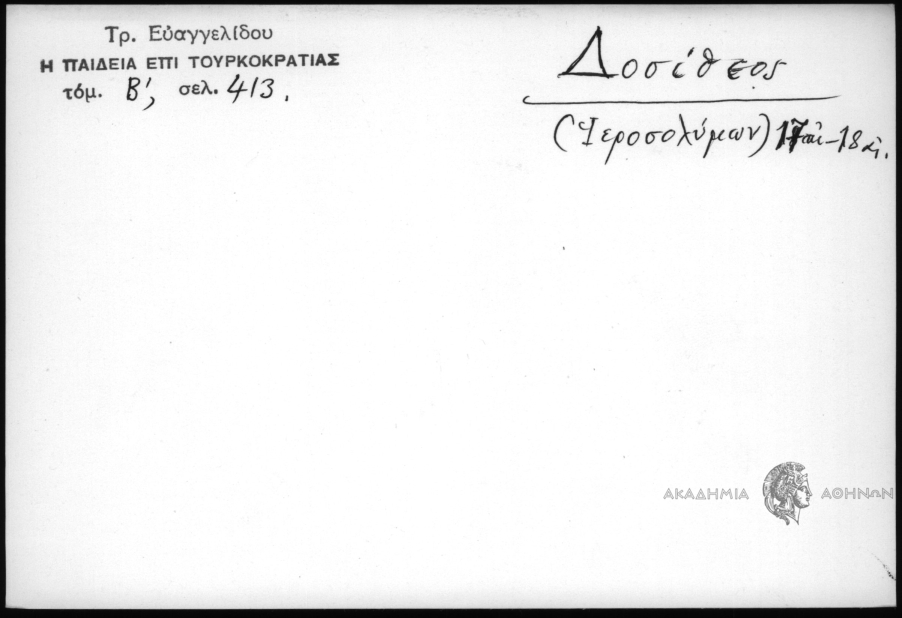 Τρ. Εὐαγγελίδου
Η ΠΑΙΔΕΙΑ ΕΠΙ ΤΟΥΡΚΟΚΡΑΤΙΑΣ
τόμ. Β', σελ. 413.
Δοσίθεος
(Ἱεροσολύμων) 17 αἰ-18 αἰ.
ΑΚΑΔΗΜΙΑ ΑΘΗΝΩΝ